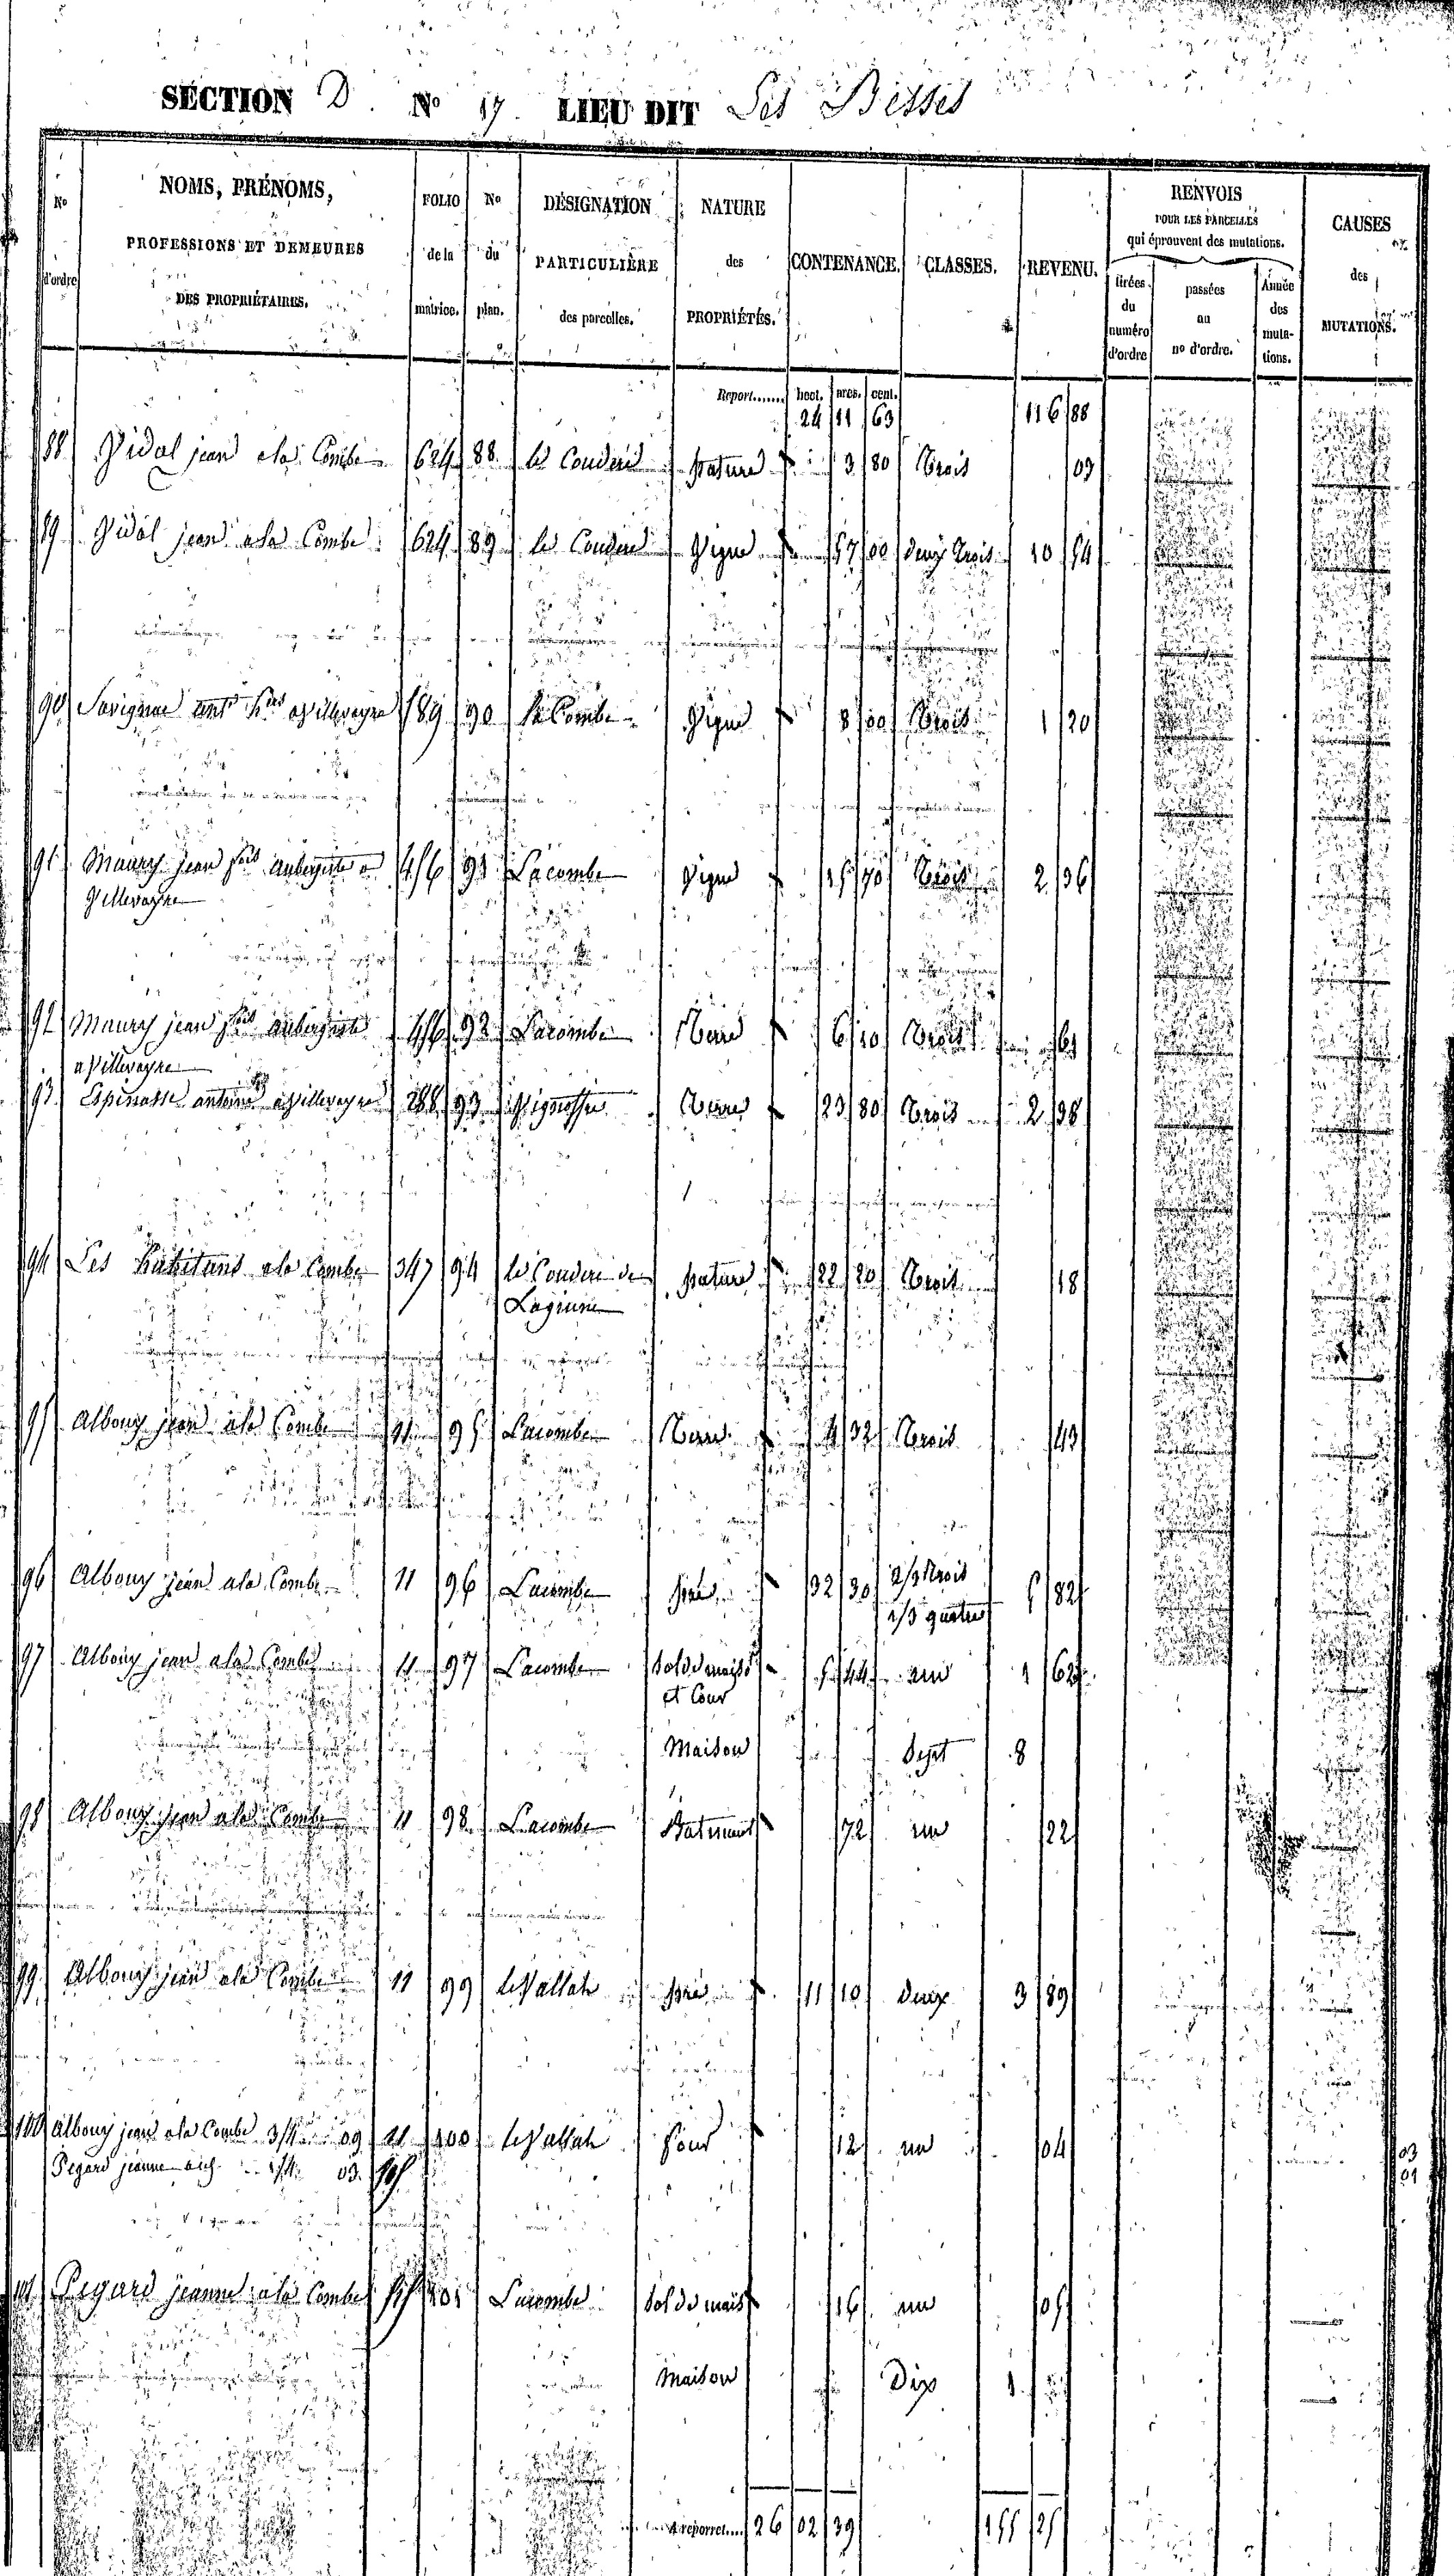 SECTION D. No 17. LIEU DIT Les Bisses
No d'ordre
NOMS, PRÉNOMS, PROFESSIONS ET DEMEURES DES PROPRIÉTAIRES.
FOLIO de la matrice.
No du plan.
DÉSIGNATION PARTICULIÈRE des parcelles.
NATURE des PROPRIÉTÉS.
CONTENANCE.
CLASSES.
REVENU.
RENVOIS POUR LES PARCELLES qui éprouvent des mutations.
tirées du numéro d'ordre
passées au no d'ordre.
Année des mutations.
CAUSES des MUTATIONS.
Report....... hect. ares. cent.
24 11 63 116 88
88 Vidal jean a la Combe 624 88 le Couderc Pature 3 80 Trois 09
89 Vidal jean a la Combe 624 89 le Couderc Vigne 57 00 deux Trois 10 54
90 a Villevayre 589 90 la Combe Vigne 8 00 Trois 1 20
91 Maury jean aubergiste a 456 91 Lacombe Vigne 15 70 Trois 2 36
Villevayre
92 Maury jean aubergiste 456 92 Lacombe Terre 6 10 Trois 61
a Villevayre
93 Espinasse antoine a Villevayre 288 93 Terre 23 80 Trois 2 38
94 Les habitans a la Combe 347 94 le Couderc de Pature 22 20 Trois 18
95 Albouy jean a la Combe 11 95 Lacombe Terre 4 32 Trois 43
96 Albouy jean a la Combe 11 96 Lacombe Pré 32 30 2/3 Trois 5 82
1/3 quatre
97 Albouy jean a la Combe 11 97 Lacombe Sol de maison 5 44 un 1 63
et Cour
Maison Sept 8
98 Albouy jean a la Combe 11 98 Lacombe Batiment 72 un 22
99 Albouy jean a la Combe 11 99 le Vallat Pré 11 10 deux 3 89
100 Albouy jean a la Combe 3/4 09 11 100 le Vallat Four 12 un 04 03
Pegard jeanne 1/4 03 515 01
101 Pegard jeanne a la Combe 515 101 Lacombe Sol de mais 16 un 05
Maison Dix
A reporter.... 26 02 39 155 25